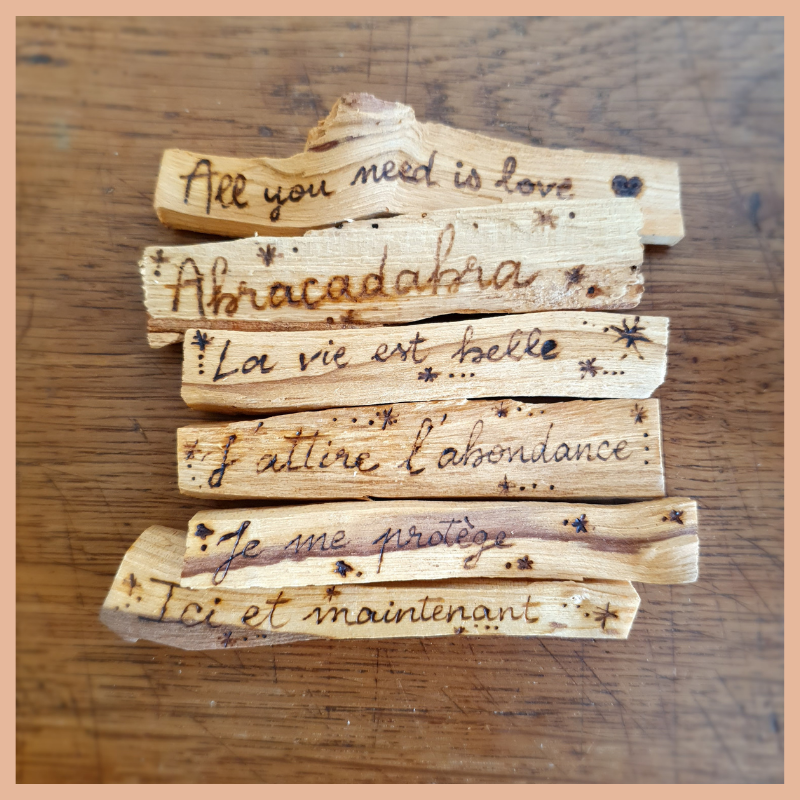 All you need is love
Abracadabra
La vie est belle
J'attire l'abondance
Je me protège
Ici et maintenant